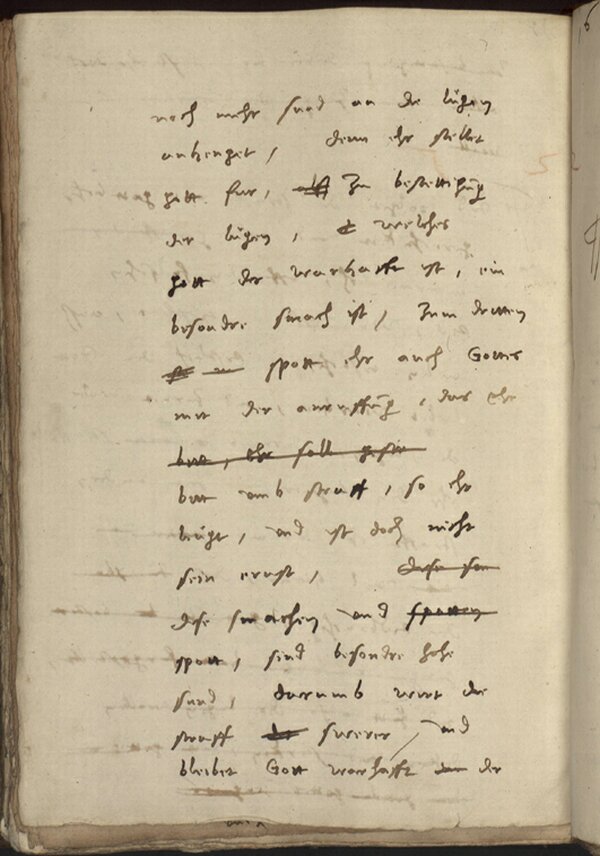 noch mehr sund an die lügen
anhenget, denn ehr stellet
gott fur, auff zu bestettigung
der lügen, welches
gott der warhafft ist, ein
besondre smach ist, zum dritten
spott ehr auch Gottes
mit der anruffung, das ehr
bitt, ehr soll
bitt umb straff, so ehr
leugt, und ist doch nicht
sein ernst, dise
dise smachen und spotten
spott, sind besondre hohe
sund, darumb wirt die
straff swerer, und
bleibet Gott warhafft der